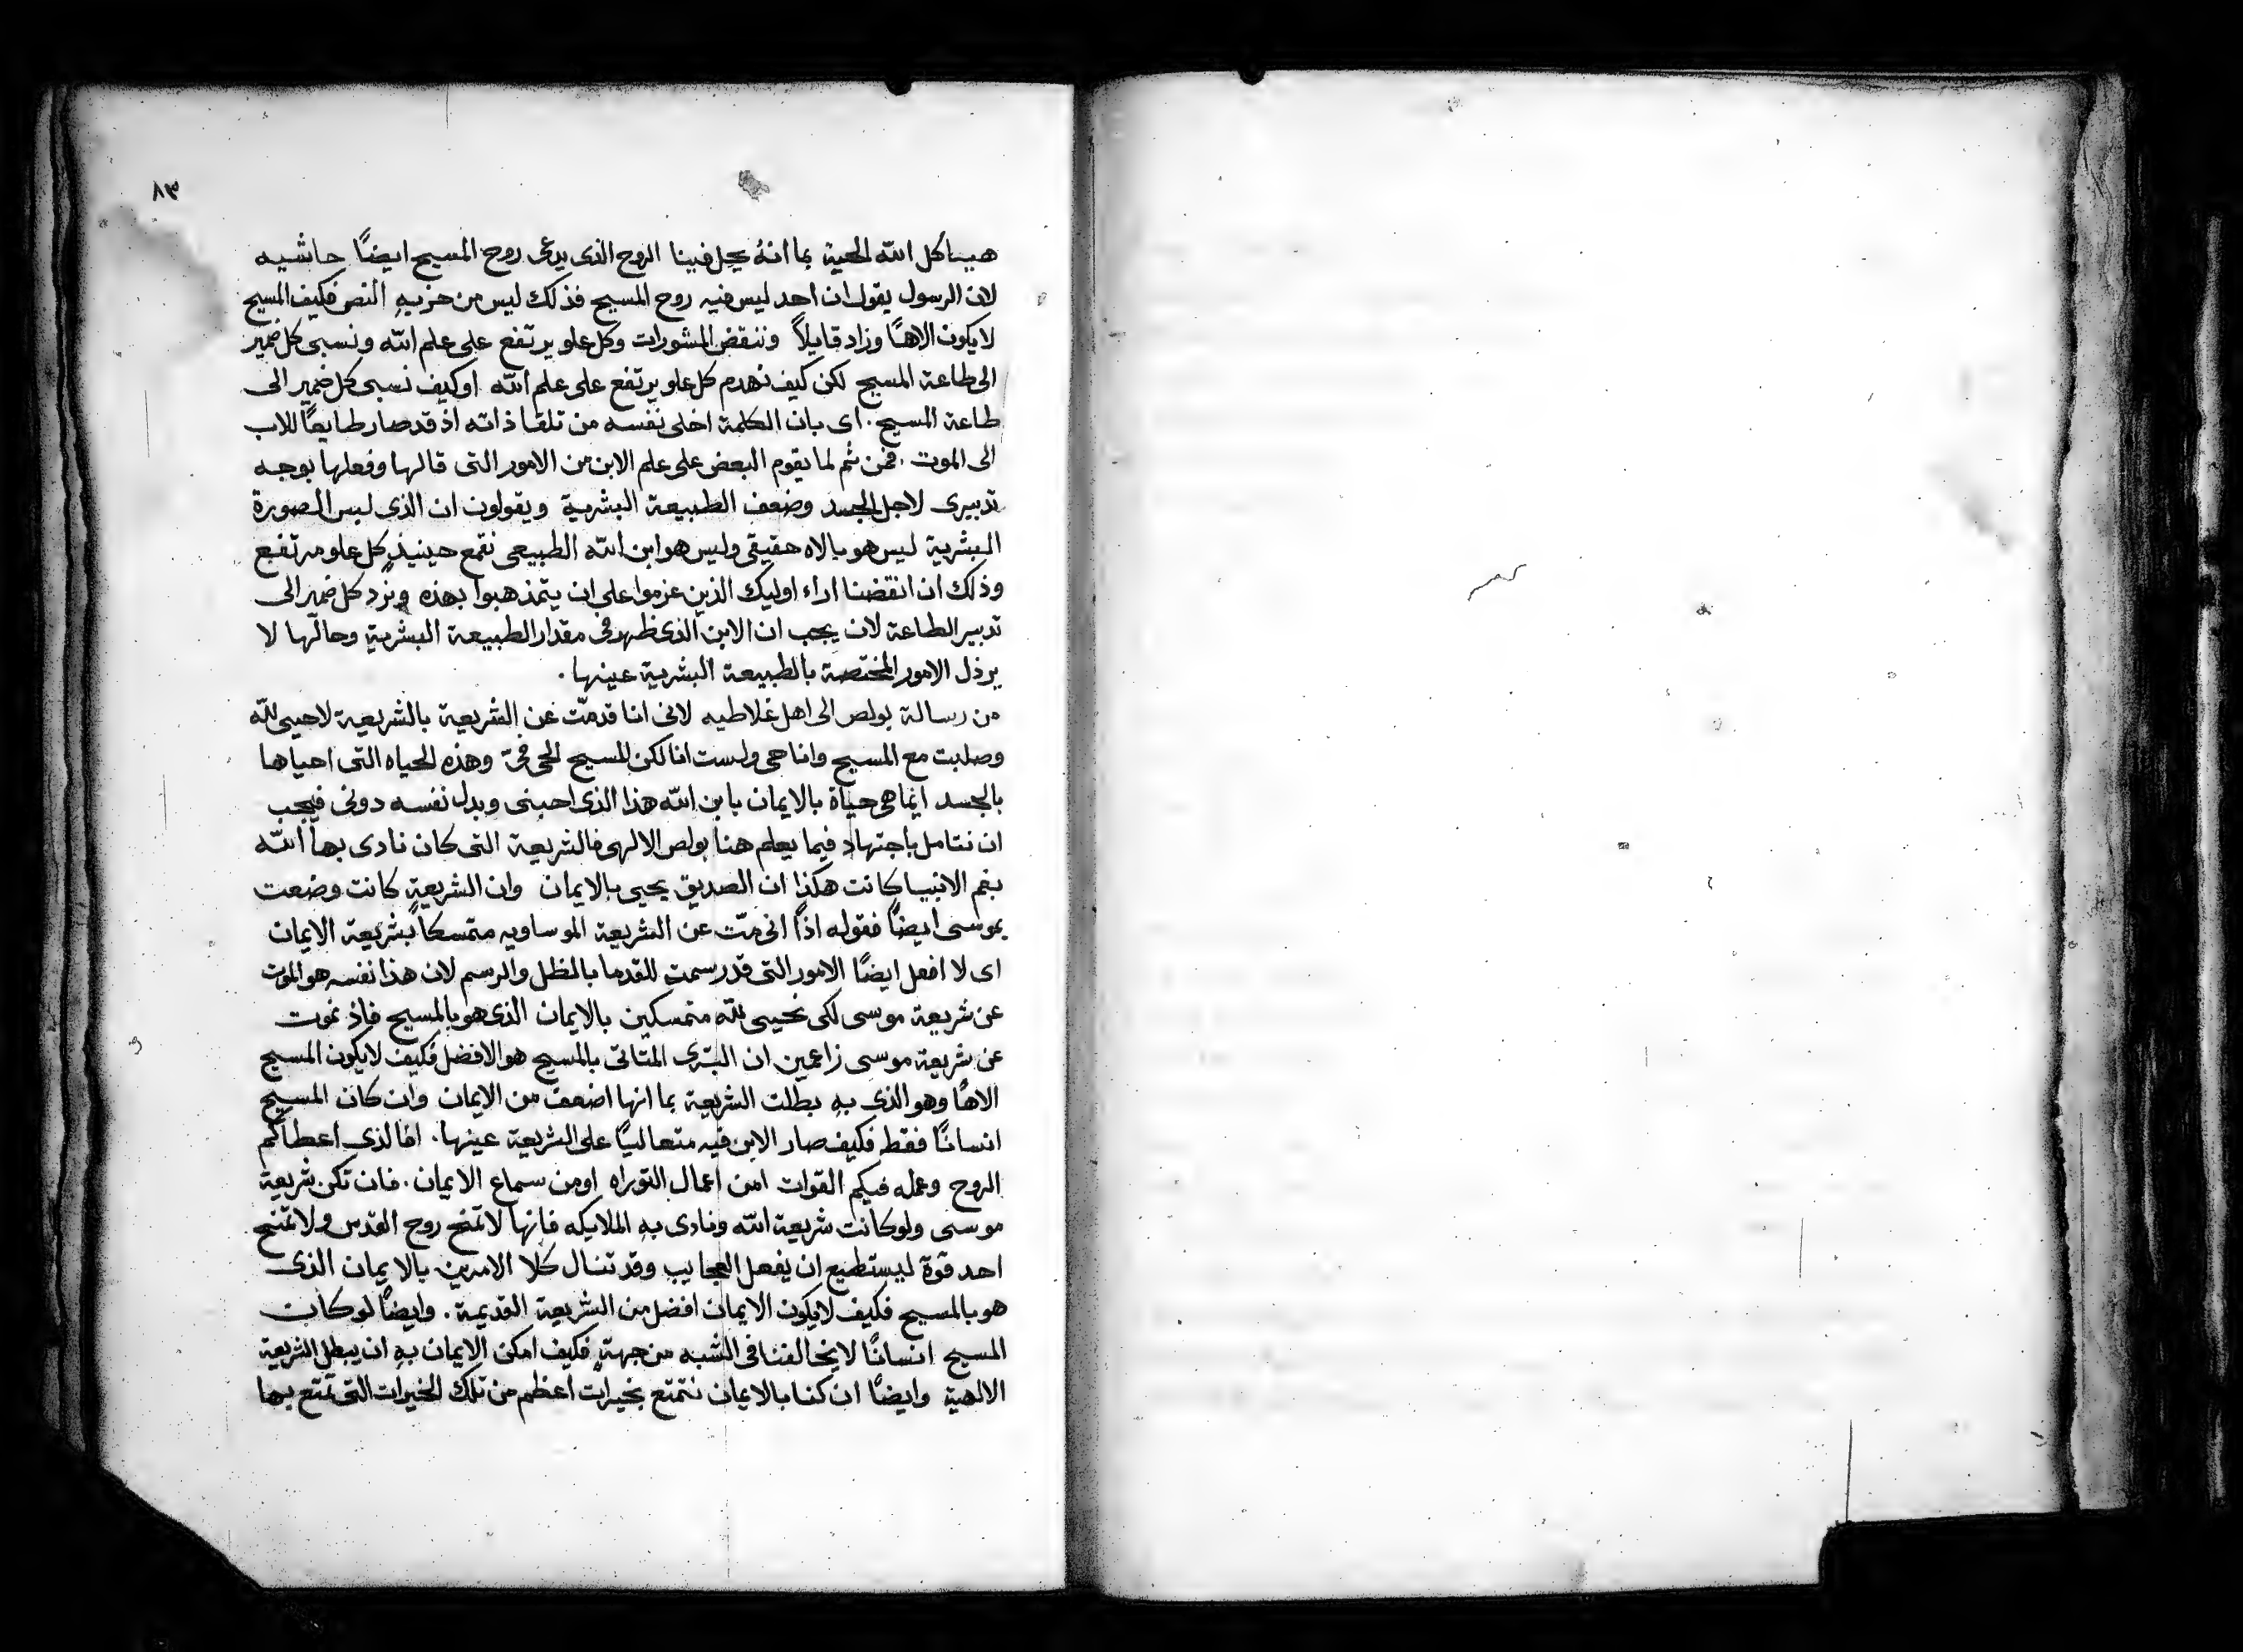 ٨٣
هياكل الله الحية بما انهُ يحل فينا الروح الذى يدعى روح المسيح ايضًا حاشيه
لان الرسول يقول ان احد ليس فيه روح المسيح فذلك ليس من حزبهِ النص فكيف المسيح
لا يكون الاهًا وزاد قايلاً وننقض المشورات وكل علو يرتفع على علم الله ونسبى كل ضمير
الى طاعة المسيح لكن كيف نهدم كل علو يرتفع على علم الله اوكيف نسبى كل ضمير الى
طاعة المسيح. اى بان الكلمة اخلى نفسه من تلقا ذاته اذ قد صار طايعًا للاب
الى الموت. فمن ثم لما يقوم البعض على علم الابن من الامور التى قالها وفعلها بوجه
تدبيرى لاجل الجسد وضعف الطبيعة البشرية ويقولون ان الذى لبس الصورة
البشرية ليس هو بالاه حقيقى وليس هو ابن الله الطبيعى نقمع حينيذٍ كل علو مرتفع
وذلك ان انقضنا اراء اوليك الذين عزموا على ان يتمذهبوا بهذه ونرد كل ضمير الى
تدبير الطاعة لان يجب ان الابن الذى ظهر فى مقدار الطبيعة البشرية وحالها لا
يرذل الامور المختصة بالطبيعة البشرية عينها.
من رسالة بولص الى اهل غلاطيه لانى انا قدمتّ عن الشريعة بالشريعة لاحيى لله
وصلبت مع المسيح وانا حى ولست انا لكن المسيح الحى فىّ وهذه الحياه التى احياها
بالجسد انما هى حياة بالايمان بابن الله هذا الذى احبنى وبدل نفسه دونى فيجب
ان نتامل باجتهاد فيما يعلم هنا بولص الالهى فالشريعة التى كان نادى بها الله
بفم الانبيا كانت هكذا ان الصديق يحيى بالايمان وان الشريعة كانت وضعت
بموسى ايضًا فقوله اذًا انى متّ عن الشريعة الموساويه متمسكًا بشريعة الايمان
اى لا افعل ايضًا الامور التى قد رسمت للقدما بالظل والرسم لان هذا نفسه هو الموت
عن شريعة موسى لكى نحيى لله متمسكين بالايمان الذى هو بالمسيح فاذ نموت
عن شريعة موسى زاعمين ان البرّ المتاتى بالمسيح هو الافضل فكيف لايكون المسيح
الاهًا وهو الذى بهِ بطلت الشريعة بما انها اضعف من الايمان وان كان المسيح
انسانًا فقط فكيف صار الابن فيه متعاليًا على الشريعة عينها. افالذى اعطاكم
الروح وعمله فيكم القوات امن اعمال التوراه اومن سماع الايمان. فان تكن شريعة
موسى ولو كانت شريعة الله ونادى بهِ الملايكه فانها لاتمنح روح القدس ولا تمنح
احد قوة ليستطيع ان يفعل العجايب وقد تنال كلا الامرين بالايمان الذى
هو بالمسيح فكيف لايكون الايمان افضل من الشريعة القديمة. وايضًا لو كان
المسيح انسانًا لايخالفنا فى الشبه من جهةٍ فكيف امكن الايمان بهِ ان يبطل الشريعة
الالهية وايضًا ان كنا بالايمان نتمتع بخيرات اعظم من تلك الخيرات التى تمتع بها